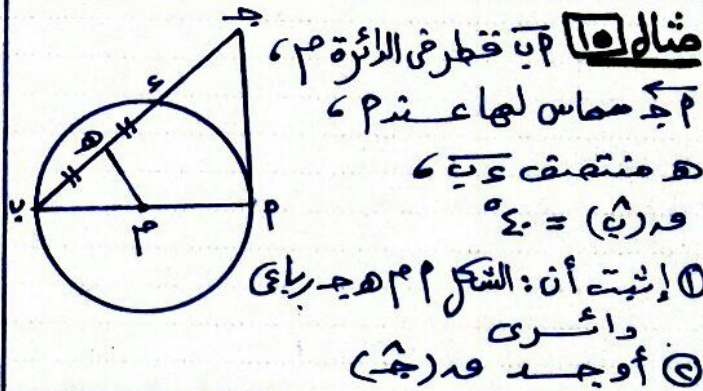 مثال ١٥ اب قطر فى الدائرة م ،
اجـ مماس لها عند ا ،
هـ منتصف ءب ،
ق(ب̂) = ٤٠°
① إثبت أن : الشكل ا م هـ جـ رباعى
دائرى
② أوجد ق(جـ̂)
جـ
ء
هـ
ب
م
ا